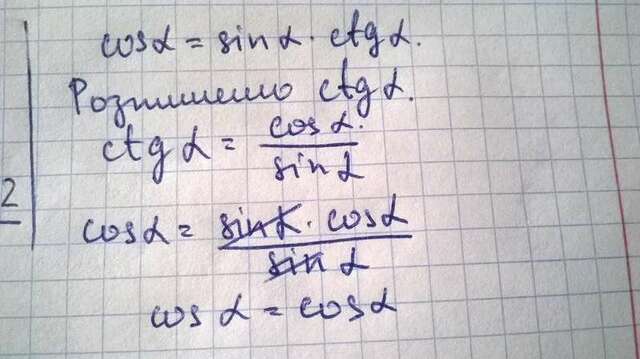 cos α = sin α · ctg α.
Розпишемо ctg α.
ctg α = cos α / sin α
2
cos α = sin α · cos α / sin α
cos α = cos α